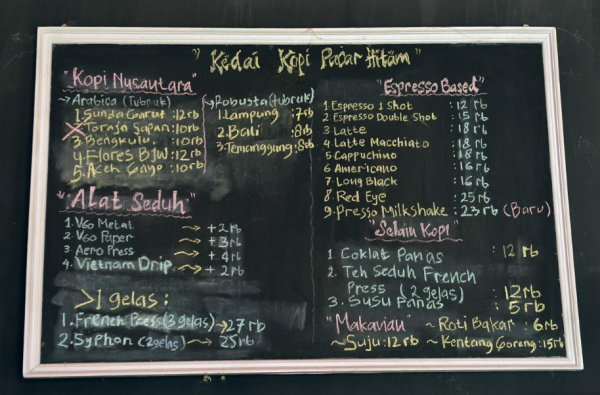 " Kedai Kopi Pacar Hitam "
"Kopi Nusantara"
→ Arabica (Tubruk)
1. Sunda Garut : 12 rb
2. Toraja Sapan : 10 rb
3. Bengkulu : 10 rb
4. Flores BJW : 12 rb
5. Aceh Gayo : 10 rb
→ Robusta (tubruk)
1. Lampung : 7 rb
2. Bali : 8 rb
3. Temanggung : 8 rb
"Alat Seduh"
1. V60 Metal → + 2 rb
2. V60 Paper → + 3 rb
3. Aero Press → + 4 rb
4. Vietnam Drip → + 2 rb
>1 gelas :
1. French Press (3 gelas) → 27 rb
2. Syphon (2 gelas) → 25 rb
"Espresso Based"
1 Espresso 1 Shot : 12 rb
2 Espresso Double Shot : 15 rb
3 Latte : 18 rb
4 Latte Macchiato : 18 rb
5 Cappuchino : 18 rb
6 Americano : 16 rb
7 Long Black : 16 rb
8. Red Eye : 25 rb
9. Presso Milkshake : 23 rb (Baru)
"Selain Kopi"
1 Coklat Panas : 12 rb
2. Teh Seduh French
Press (2 gelas) : 12 rb
3. Susu Panas : 5 rb
"Makaviau" ~ Roti Bakar : 6 rb
~ Suju : 12 rb ~ Kentang Goreng : 15 rb